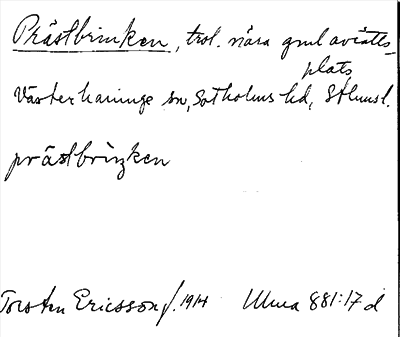 Prästbrinken, trol. nära gml avrätts-
plats
Västerhaninge sn, Sotholms hd, Sthmsl.
prästbriŋken
Torsten Ericsson f. 1914 Ulua 881:17 d